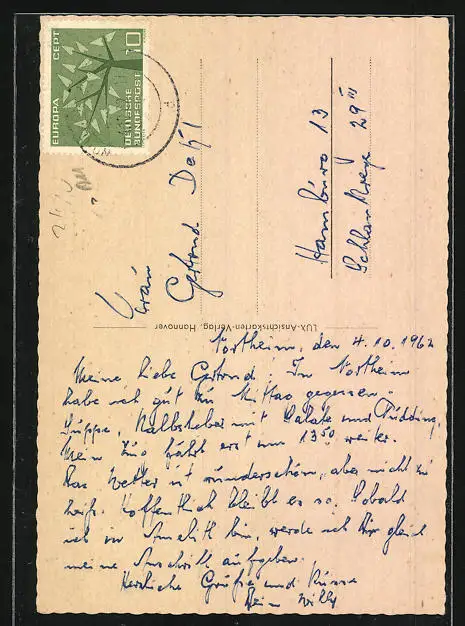 EUROPA CEPT
10
DEUTSCHE
BUNDESPOST
Frau
Gertrud
Hamburg 13
29 III
LUX-Ansichtskarten-Verlag, Hannover
Northeim, den 4.10.1962
Meine liebe Gertrud. In Northeim
habe ich gut zu Mittag gegessen.
Suppe, Kalbsleber mit Salate und Pudding.
Mein Zug fährt erst um 13 50 weiter.
Das Wetter ist wunderschön, aber nicht zu
heiß. Hoffentlich bleibt es so. Sobald
ich in bin, werde ich Dir gleich
meine Anschrift aufgeben.
Herzliche Grüße und Küsse
Dein Willy